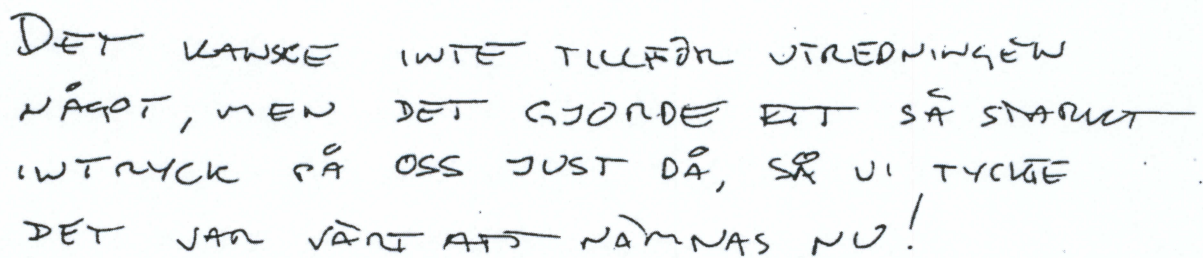 DET KANSKE INTE TILLFÖR UTREDNINGEN
NÅGOT, MEN DET GJORDE ETT SÅ STARKT
INTRYCK PÅ OSS JUST DÅ, SÅ VI TYCKTE
DET VAR VÄRT ATT NÄMNAS NU!